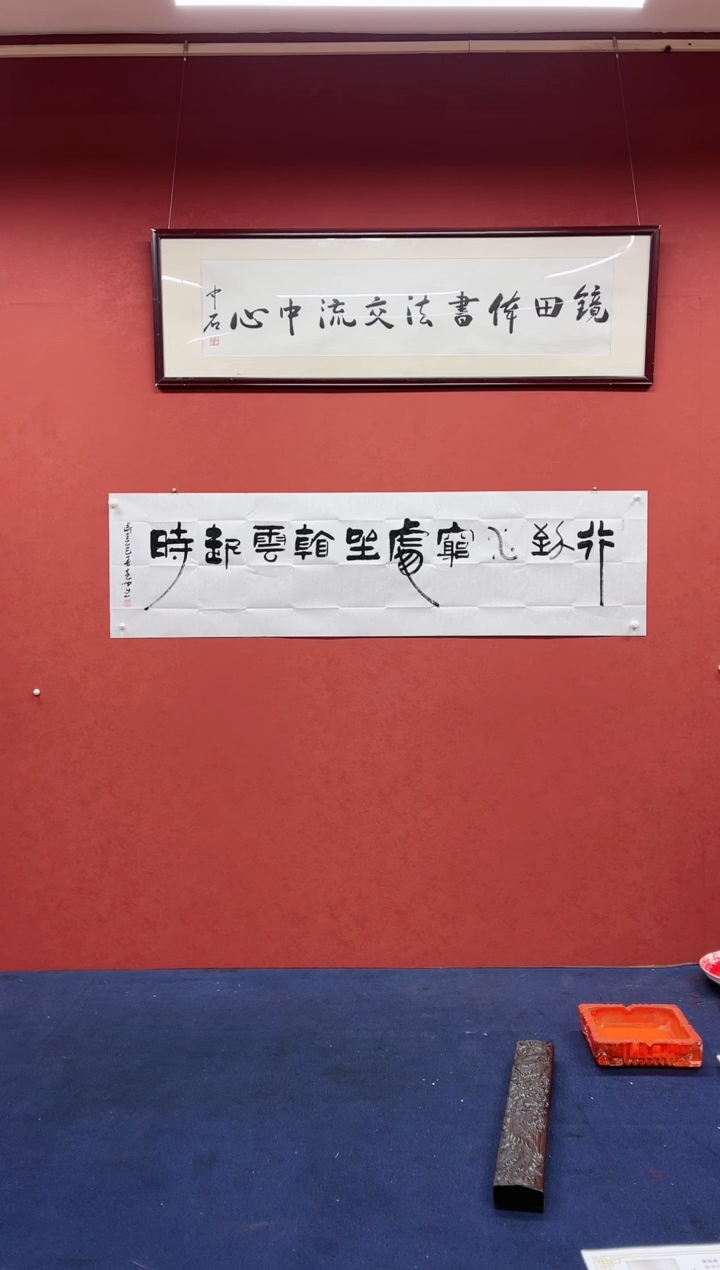 鏡田体書法交流中心
中石
行到水窮處坐看雲起時